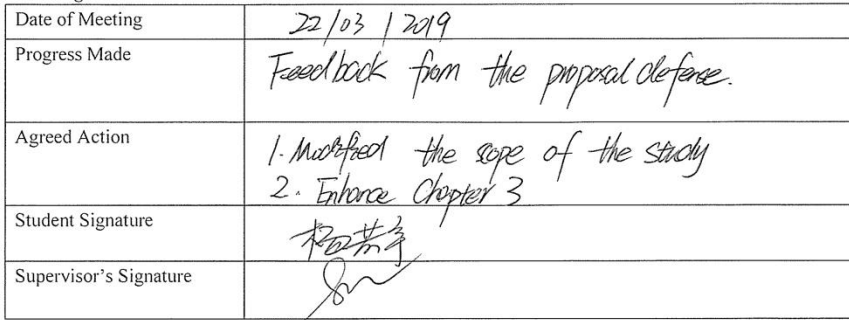 Date of Meeting 22/03/2019
Progress Made Feedback from the proposal defense.
Agreed Action 1. Modified the scope of the study
2. Enhance Chapter 3
Student Signature
Supervisor's Signature